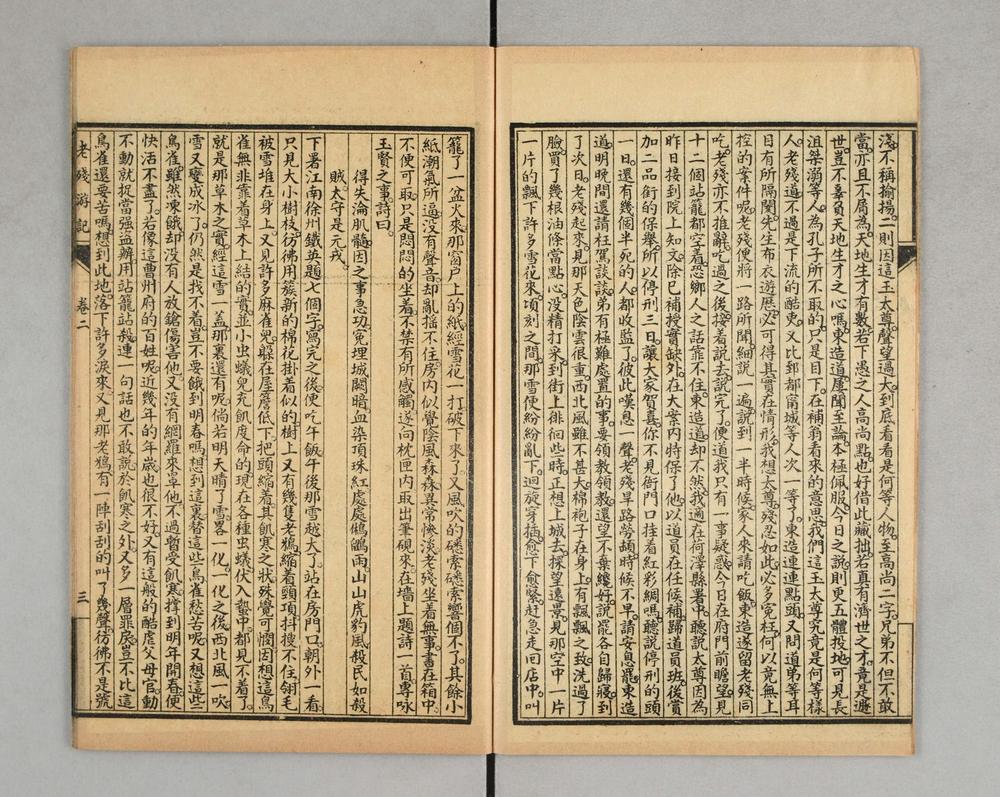 淺。不稱揄揚。二則因這玉太尊聲望過大。到底看看是何等人物。至高尚二字。兄弟不但不敢
當。亦且不屑為。天地生才有數。若下愚之人高尚點。也好借此藏拙。若真有濟世之才。竟是遯
世。豈不辜負天地生才之心嗎。東造道。屢聞至論。本極佩服。今日之說。則更五體投地。可見長
沮桀溺等人。為孔子所不取的。只是目下。在補翁看來的意思。我們這玉太尊究竟是何等樣
人。老殘道。不過是下流的酷吏。又比郅都甯城等人次一等了。東造連連點頭。又問道。弟等耳
目有所隔閡。先生布衣遊歷。必可得其實在情形。我想太尊殘忍如此。必多寃枉。何以竟無上
控的案件呢。老殘便將一路所聞細說一遍。說到一半時候。家人來請吃飯。東造遂留老殘同
吃。老殘亦不推辭。吃過之後。接着說去。說完了。便道。我只有一事疑惑。今日在府門前瞻望。見
十二個站籠都空着。恐鄉人之話靠不住。東造道。却不然。我適在何澤縣署中。聽說太尊因為
昨日接到院上知文。除已補授實缺外。在大案內特保了他以道員在任候補。歸道員班後賞
加二品銜的保舉。所以停刑三日。讓大家賀喜。你不見衙門口挂着紅彩綢嗎。聽說停刑的頭
一日。還有幾個半死的人。都收監了。彼此嘆息一聲。老殘旱路勞頓時候不早。請安息罷。東造
道。明晚間還請枉駕談談。弟有極難處置的事。要領教領教。還望不棄纔好。說罷各自歸寢。到
了次日。老殘起來。見那天色陰雲很重。西北風雖不甚大。棉袍子在身上有飄飄之致。洗過了
臉。買了幾根油條當點心。沒精打采。到街上徘徊些時。正想上城去探望遠景。見那空中一片
一片的飄下許多雪花來。頃刻之間。那雪便紛紛亂下。迴旋穿插。愈下愈緊。赶急走回店中。叫
籠了一盆火來。那窗户上的紙。經雪花一打破下來了。又風吹的磉索磉索響個不了。其餘小
紙潮氣所逼。没有聲音。却亂摇不住。房内似覺陰風森森。異常慘淡。老殘坐着無事。書在箱中。
不便可取。只是悶悶的坐着。不禁有所感觸。遂向枕匣内取出筆硯來。在墻上題詩一首。專咏
玉賢之事。詩曰。
得失淪肌髓。因之事急功。冤埋城闕暗。血染頂珠紅。處處鵂鶹雨。山山虎豹風。殺民如殺
賊。太守是元戎。
下署江南徐州鐵英題七個字。寫完之後。便吃午飯。午後那雪越大了。站在房門口朝外一看。
只見大小樹枝。彷彿用簇新的棉花掛着似的。樹上又有幾隻老鴉。縮着頭項。抖擻不住翎毛。
被雪堆在身上。又見許多麻雀兒躲在屋簷低下。把頭縮着。其飢寒之狀。殊覺可憫。因想這鳥
雀無非靠着草木上結的實。並小虫蟻兒充飢度命的。現在各種虫蟻伏入蟄中都見不着了。
就是那草木之實。經這雪一盖。那裏還有呢。倘若明天晴了。雪畧一化。一化之後。西北風一吹。
雪又變成冰了。仍然是找不着。豈不要餓到明春嗎。想到這裏。替這些鳥雀愁苦呢。又想這些
鳥雀雖然凍餓。却没有人放鎗傷害他。又没有網羅來拿他。不過暫受飢寒。撑到明年開春。便
快活不盡了。若像這曹州府的百姓呢。近幾年的年歲也很不好。又有這般的酷虐父母官。動
不動就捉當强盜辦。用站籠站殺。連一句話也不敢說。於飢寒之外。又多一層罪房。豈不比這
鳥雀還要苦嗎。想到此地。落下許多淚來。又見那老鴉有一陣刮刮的叫了幾聲。彷彿不是號
老殘游記
卷二
三